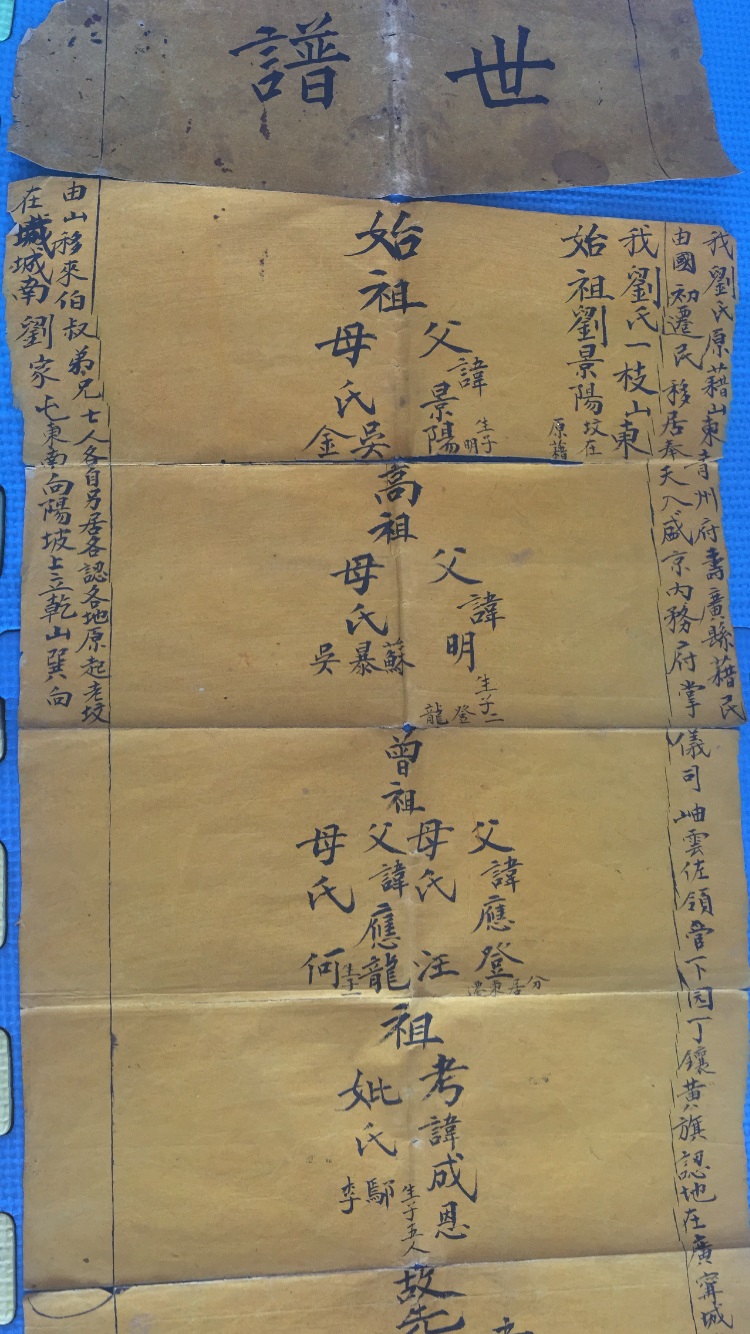 世譜
我劉氏原藉山東青州府壽廣縣藉民
由國初遷民移居奉天入盛京內務府掌
儀司岫雲佐領管下园丁鑲黃旗認地在廣寧城
我劉氏一枝山東
始祖劉景陽坟在原藉
始祖
父諱景陽生子明
母氏吳金
高祖
父諱明生子二登龍
母氏蘇暴吳
曾祖
父諱應登分居東
母氏汪
父諱應龍生子
母氏何
祖
考諱成恩生子五人
妣氏鄢李
故先
由山移來伯叔弟兄七人各自另居各認各地原起老坟
在城南劉家屯東南向陽坡上立乾山巽向